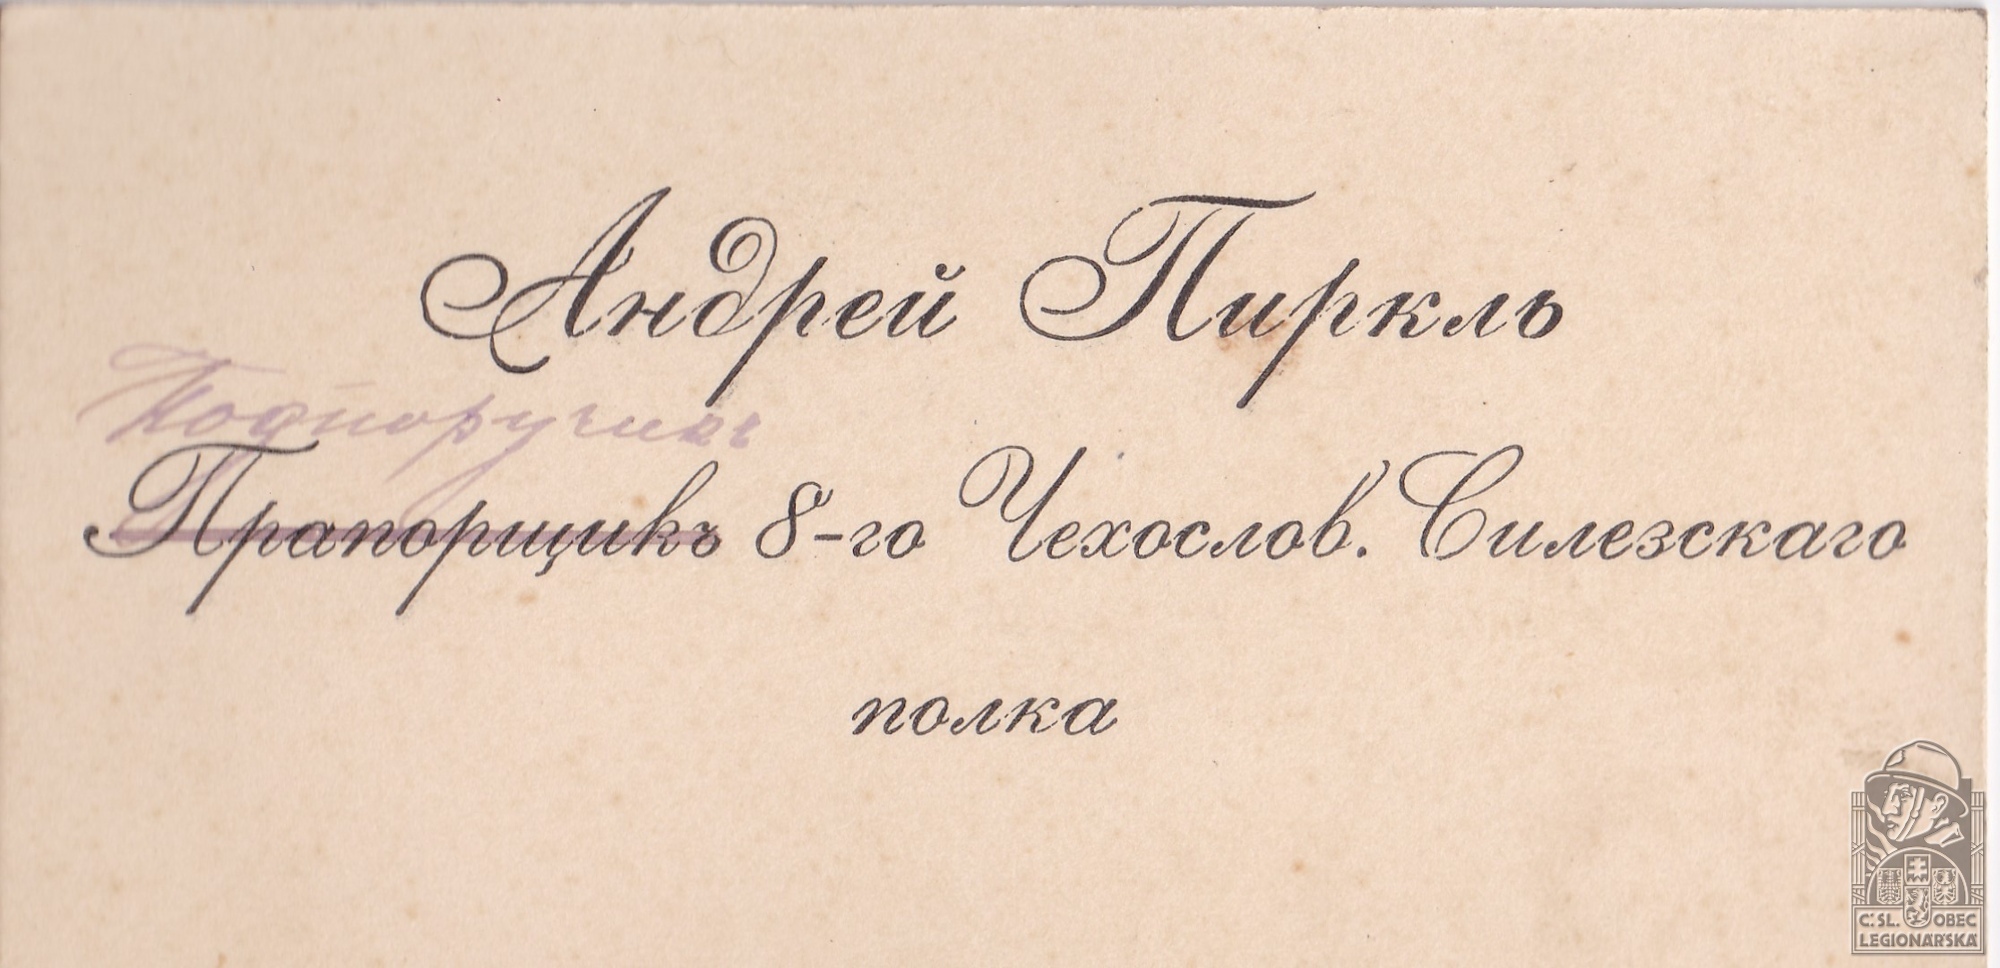 Андрей Пиркль
Подпоручикъ
Прапорщикъ 8-го Чехослов. Силезскаго
полка
Č.SL. OBEC
LEGIONÁŘSKÁ